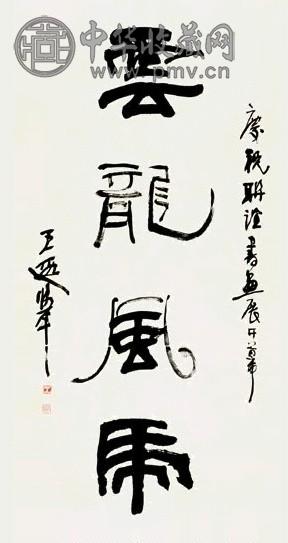 中华收藏网
www.pmv.cn
慶祝聯誼書畫展
雲龍風虎
王遐舉